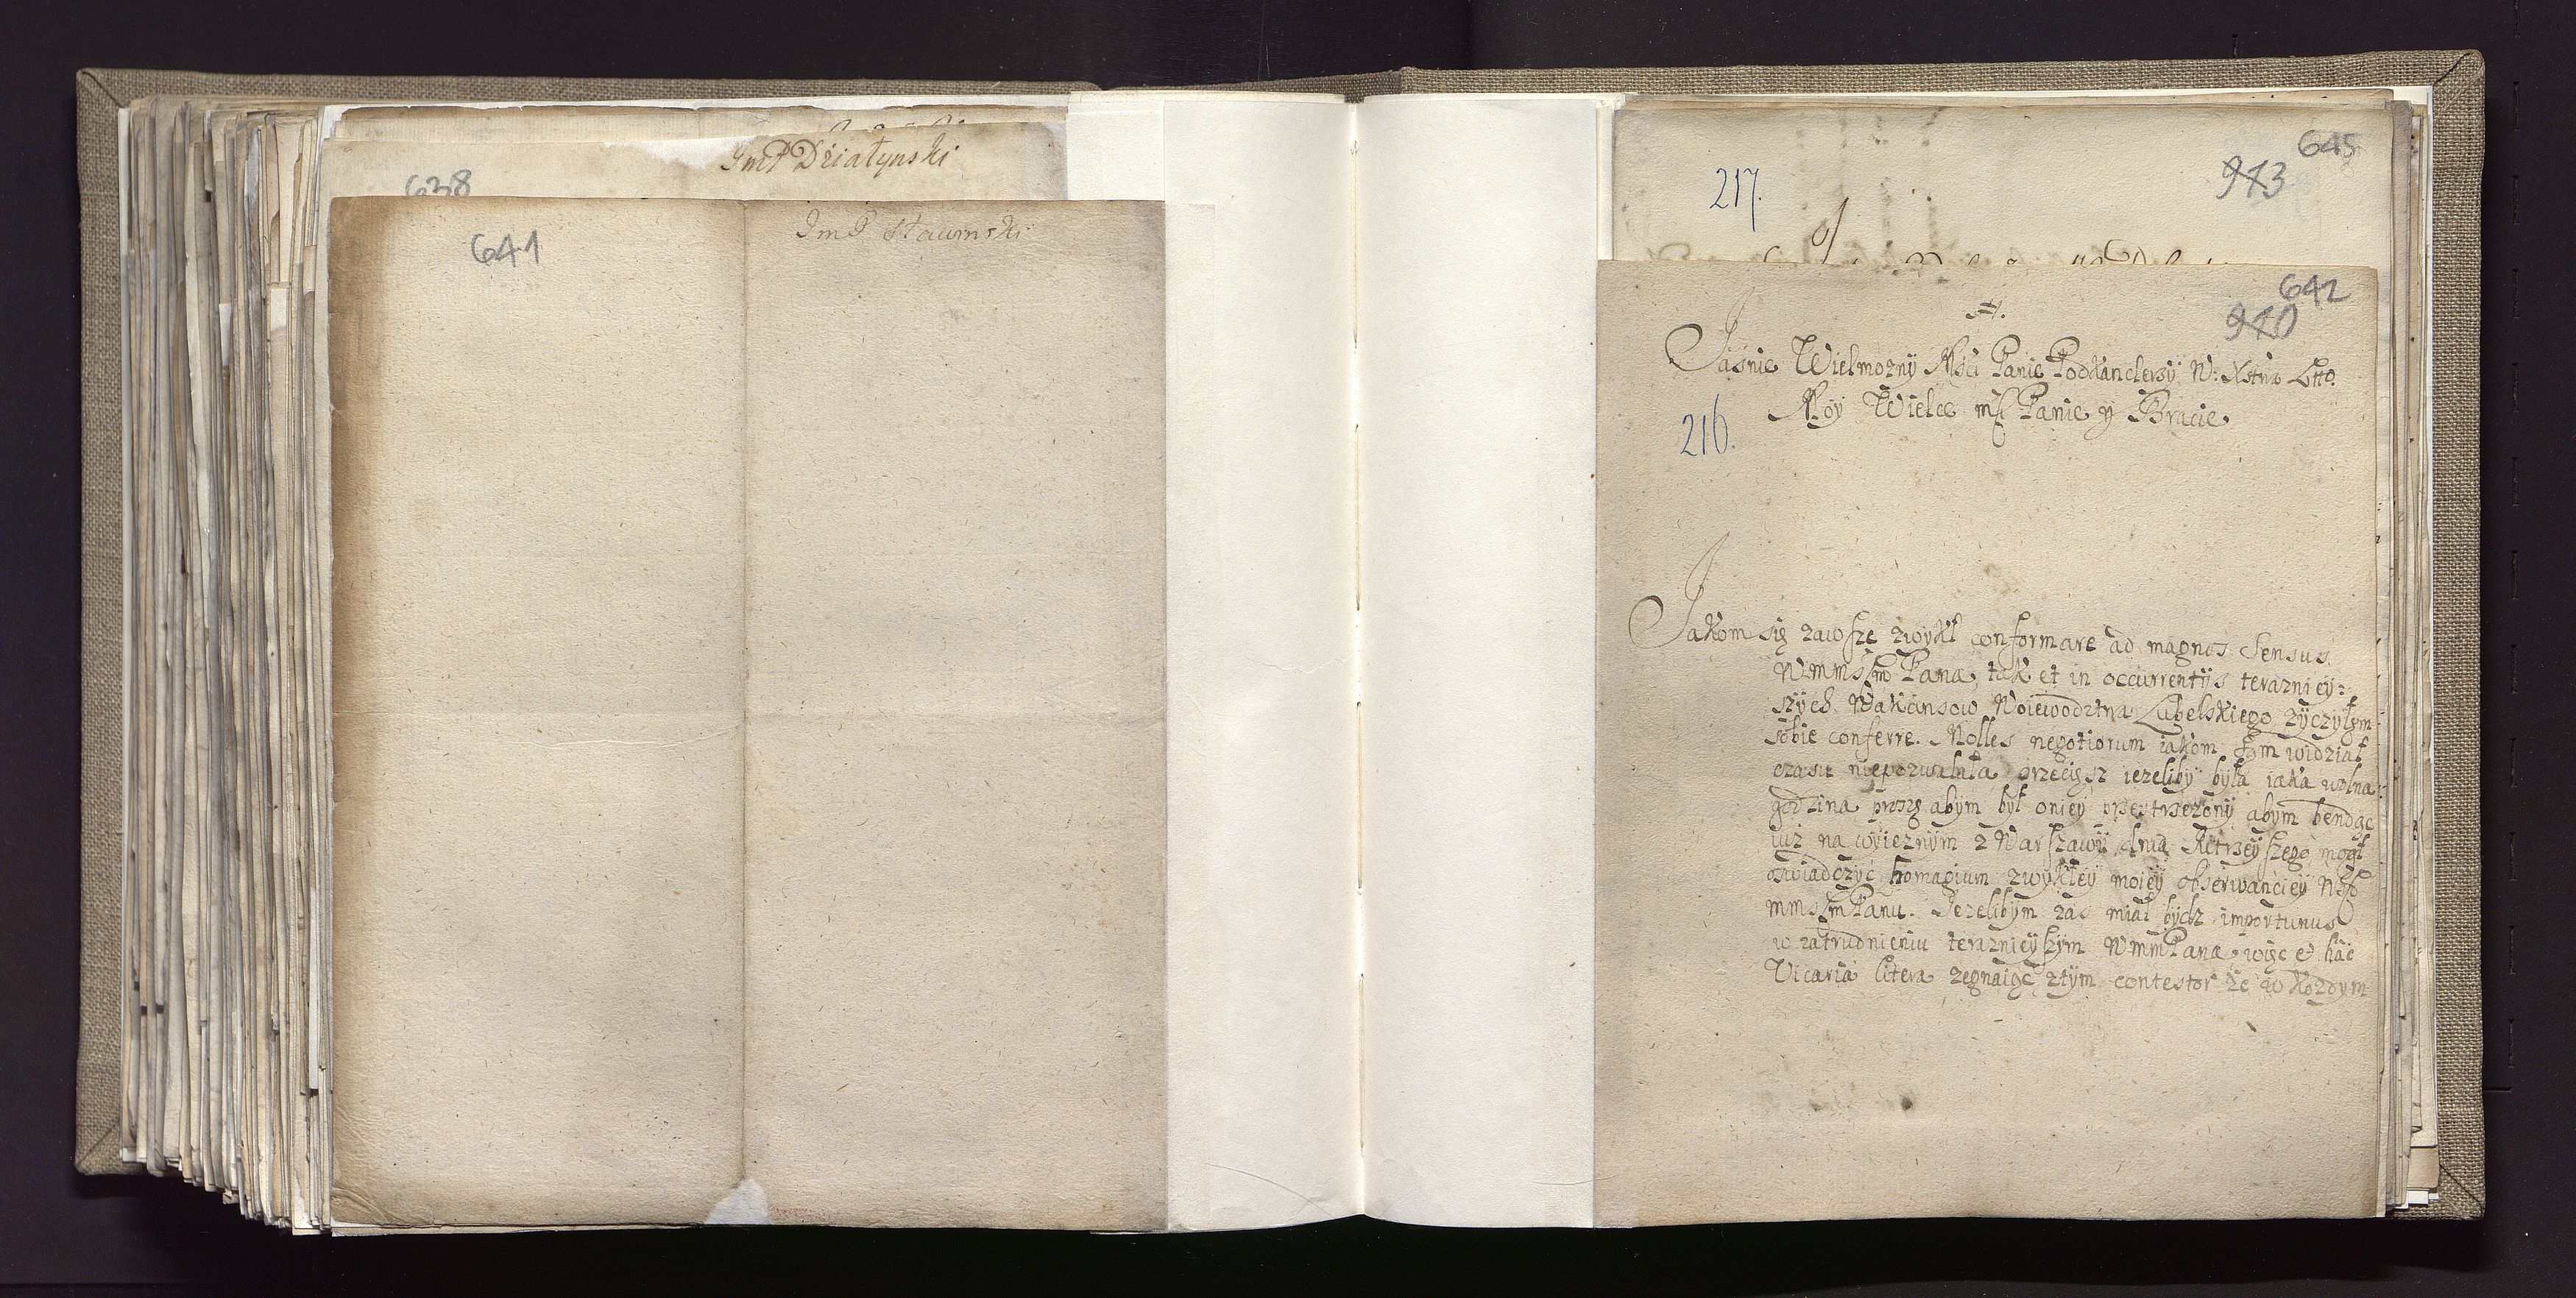 ImP Działynski
638
641
ImP Sławinski
645
943
217.
642
940
Jasnie Wielmozny Msci Panie Podkanclerzy W: Xstwa Litto.
Moy Wielce mſc Panie y Bracie
216.
Jakom się zawſze zwykł conformare ad magnos Sensus
WmmsſmPana, tak et in occurrentijs terazniey:
szych Wakansow Woiewodztwa Lubelskiego zyczyłem
sobie conferre. Molles negotiorum iakom tym widział
czasu niepozwaláła przecięsz iezeliby była iaka wolna
godzina proszę abym był oniey przestrzezony abym bendąc
iuż na wyieznym z Warſzawy dnia Ktrzeyſzego mogł
oswiadczyć homagium zwykłey moiey obserwanciey
mmsſmPanu. Jezelibym zas miał bydz importunus
w zatrudnieniu teraznieyſzym WmmPana, więc et hac
Vicaria litera zegnaiąc ztym contestor że w kozdym